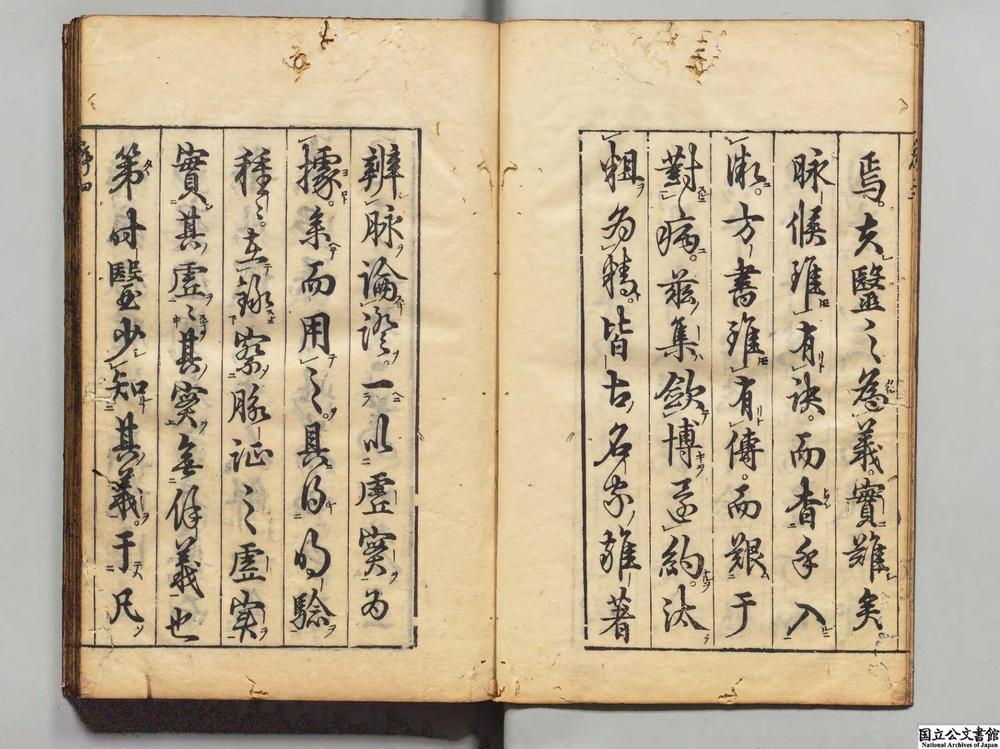 焉夫醫之為義實難矣
脉候雖有訣而杳乎入
微方書雖有傳而艱于
對病茲集斂博还約汰
粗為精皆古名家雖著
辨脉論證一以虛實為
據係而用之具得明驗
種々在融察脉证之虛实
實其虛々其実無余義也
第時醫少知其義于凡
国立公文書館
National Archives of Japan